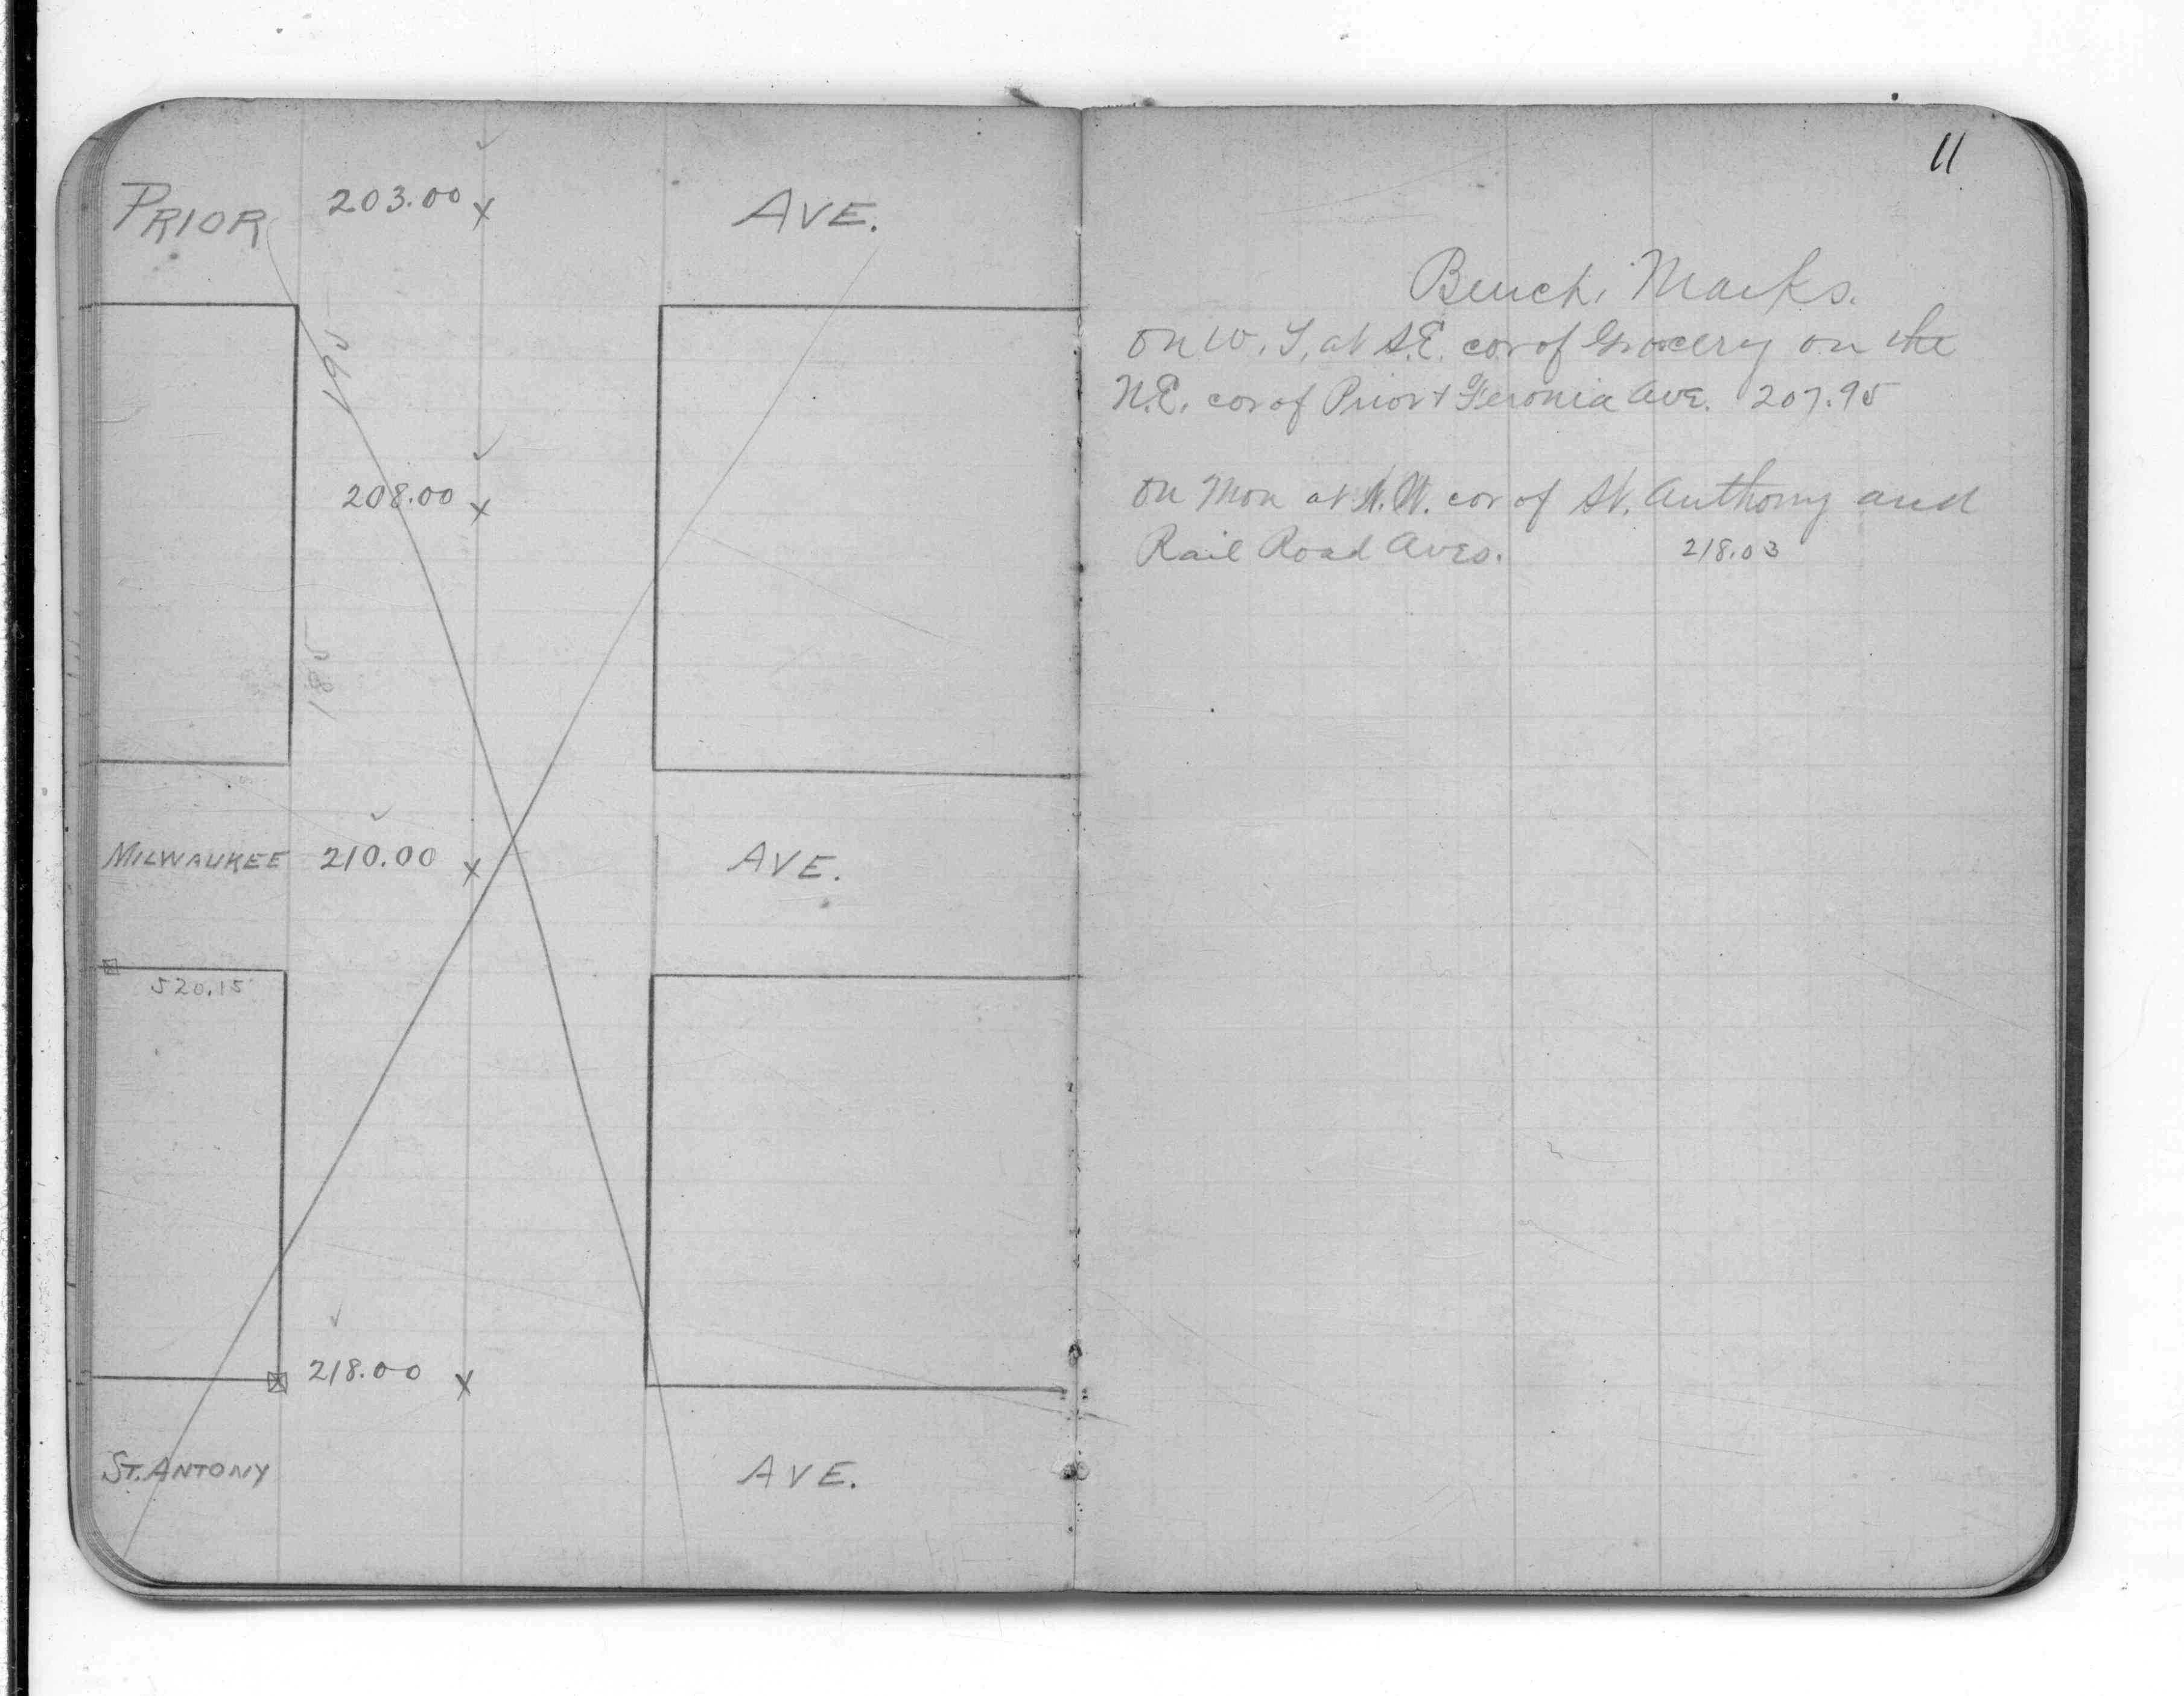 PRIOR 203.00 x AVE.
195
208.00 x
185
MILWAUKEE 210.00 x AVE.
520.15
218.00 x
ST. ANTONY AVE.
11
Bench Marks.
on W. T, at S.E. cor of Grocery on the
N.E. cor of Prior & Feronia Ave. 207.95
on Mon at N.W. cor of St. Anthony and
Rail Road Aves. 218.03